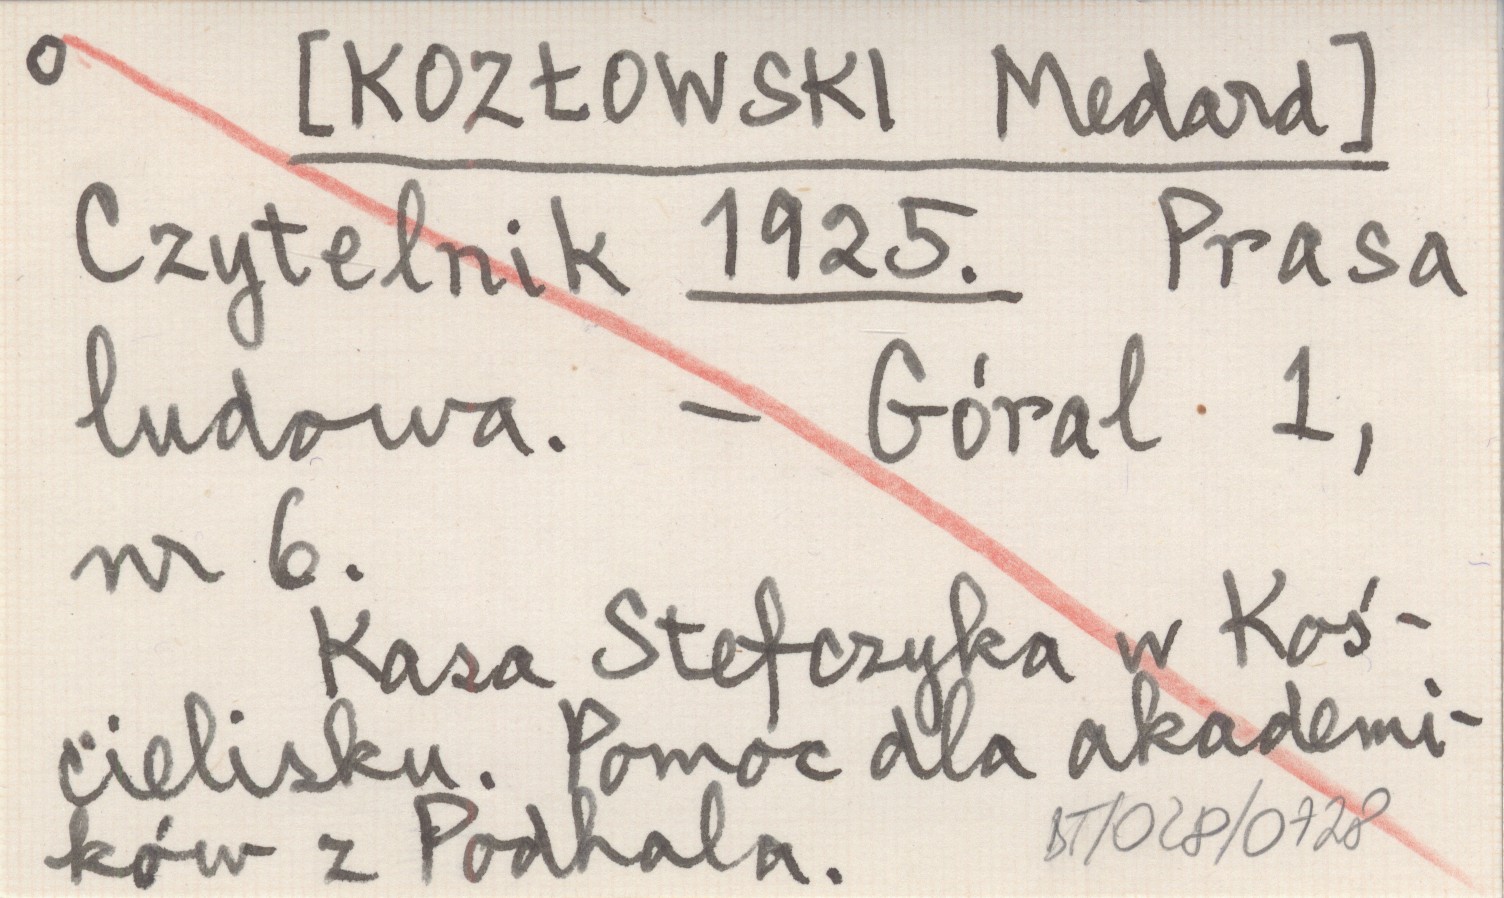 o [KOZŁOWSKI Medard]
Czytelnik 1925. Prasa
ludowa. – Góral 1,
nr 6.
Kasa Stefczyka w Koś-
cielisku. Pomoc dla akademi-
ków z Podhala.
BT/028/0728